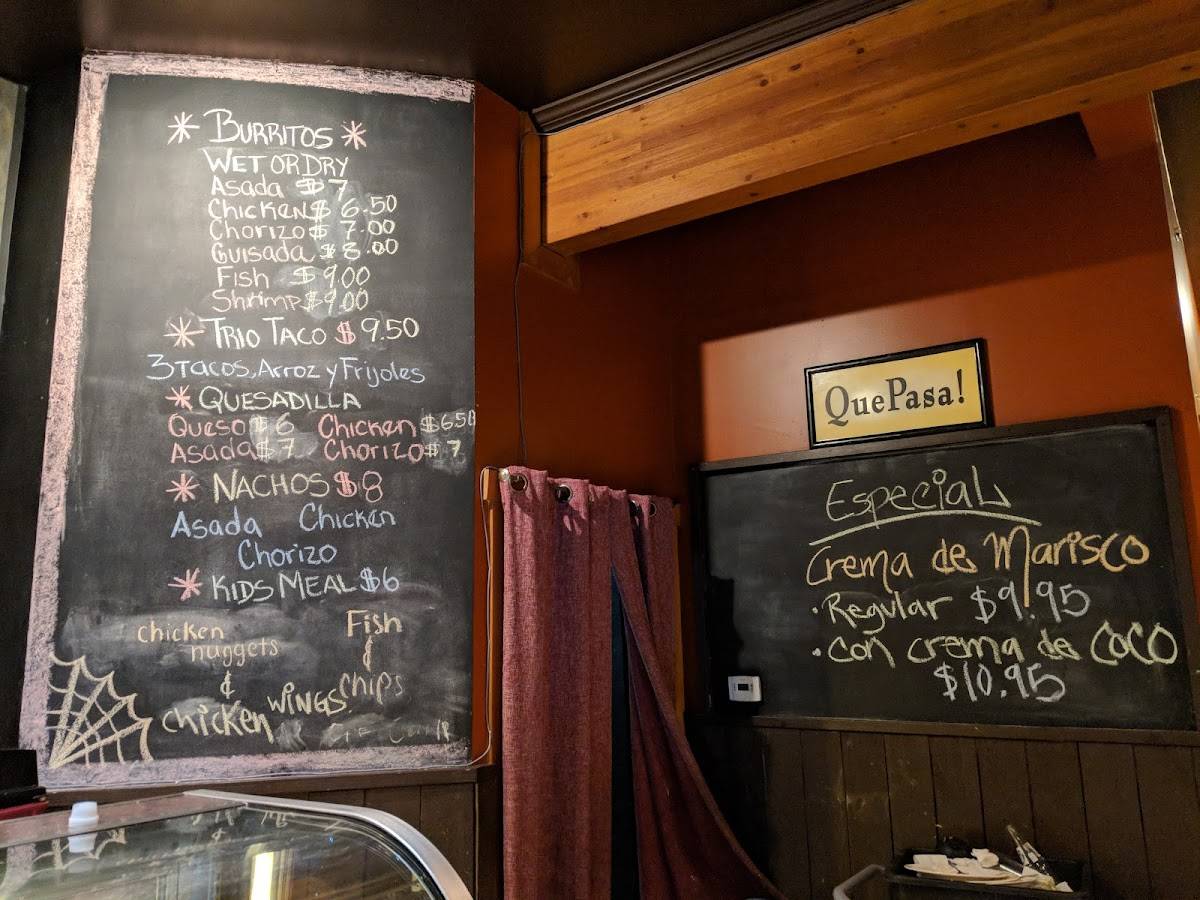 * BURRITOS *
WET OR DRY
Asada $7
Chicken $6.50
Chorizo $7.00
Guisada $8.00
Fish $9.00
Shrimp $9.00
* TRIO TACO $9.50
3 Tacos, Arroz y Frijoles
* QUESADILLA
Queso $6 Chicken $6.50
Asada $7 Chorizo $7
* NACHOS $8
Asada Chicken
Chorizo
* KIDS MEAL $6
chicken nuggets
&
chicken WINGS.
Fish
&
chips
QuePasa!
Especial
Crema de Marisco
· Regular $9.95
· con crema de COCO
$10.95